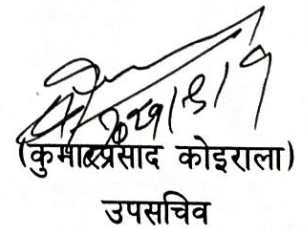 (कुमारप्रसाद कोइराला)
उपसचिव